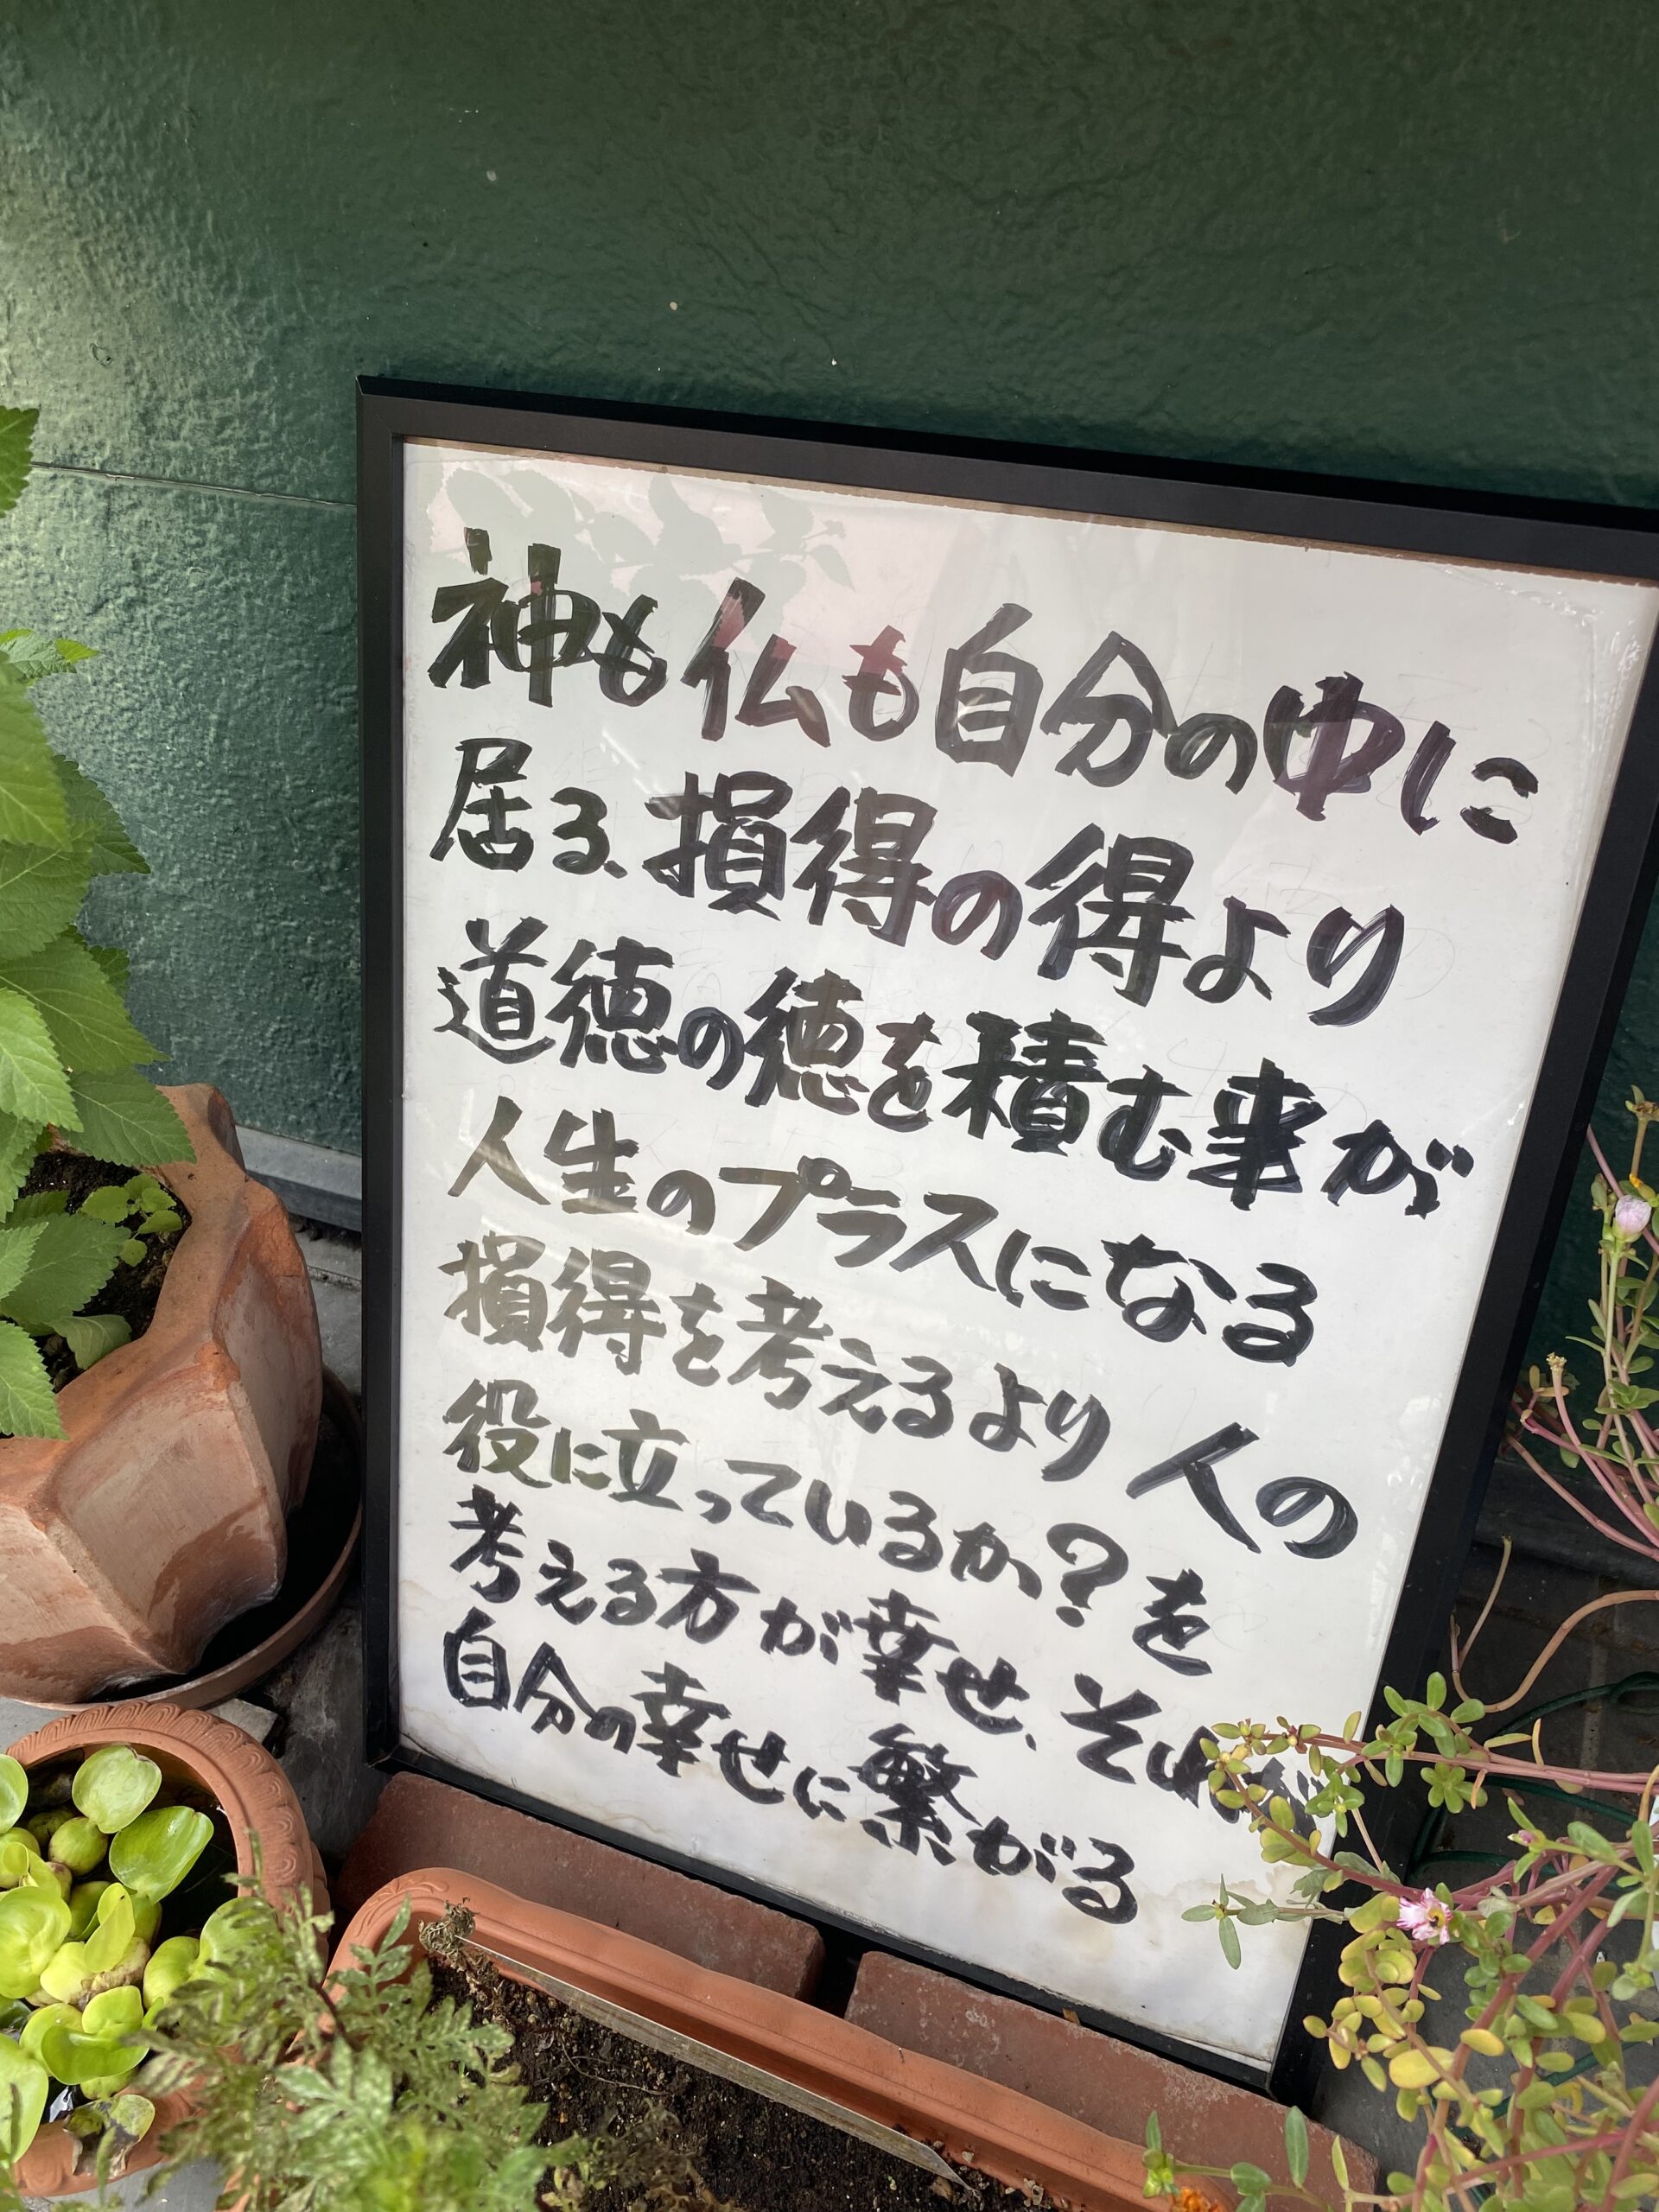 神も仏も自分の中に
居る、損得の得より
道徳の徳を積む事が
人生のプラスになる
損得を考えるより人の
役に立っているか?を
考える方が幸せ、それが
自分の幸せに繋がる